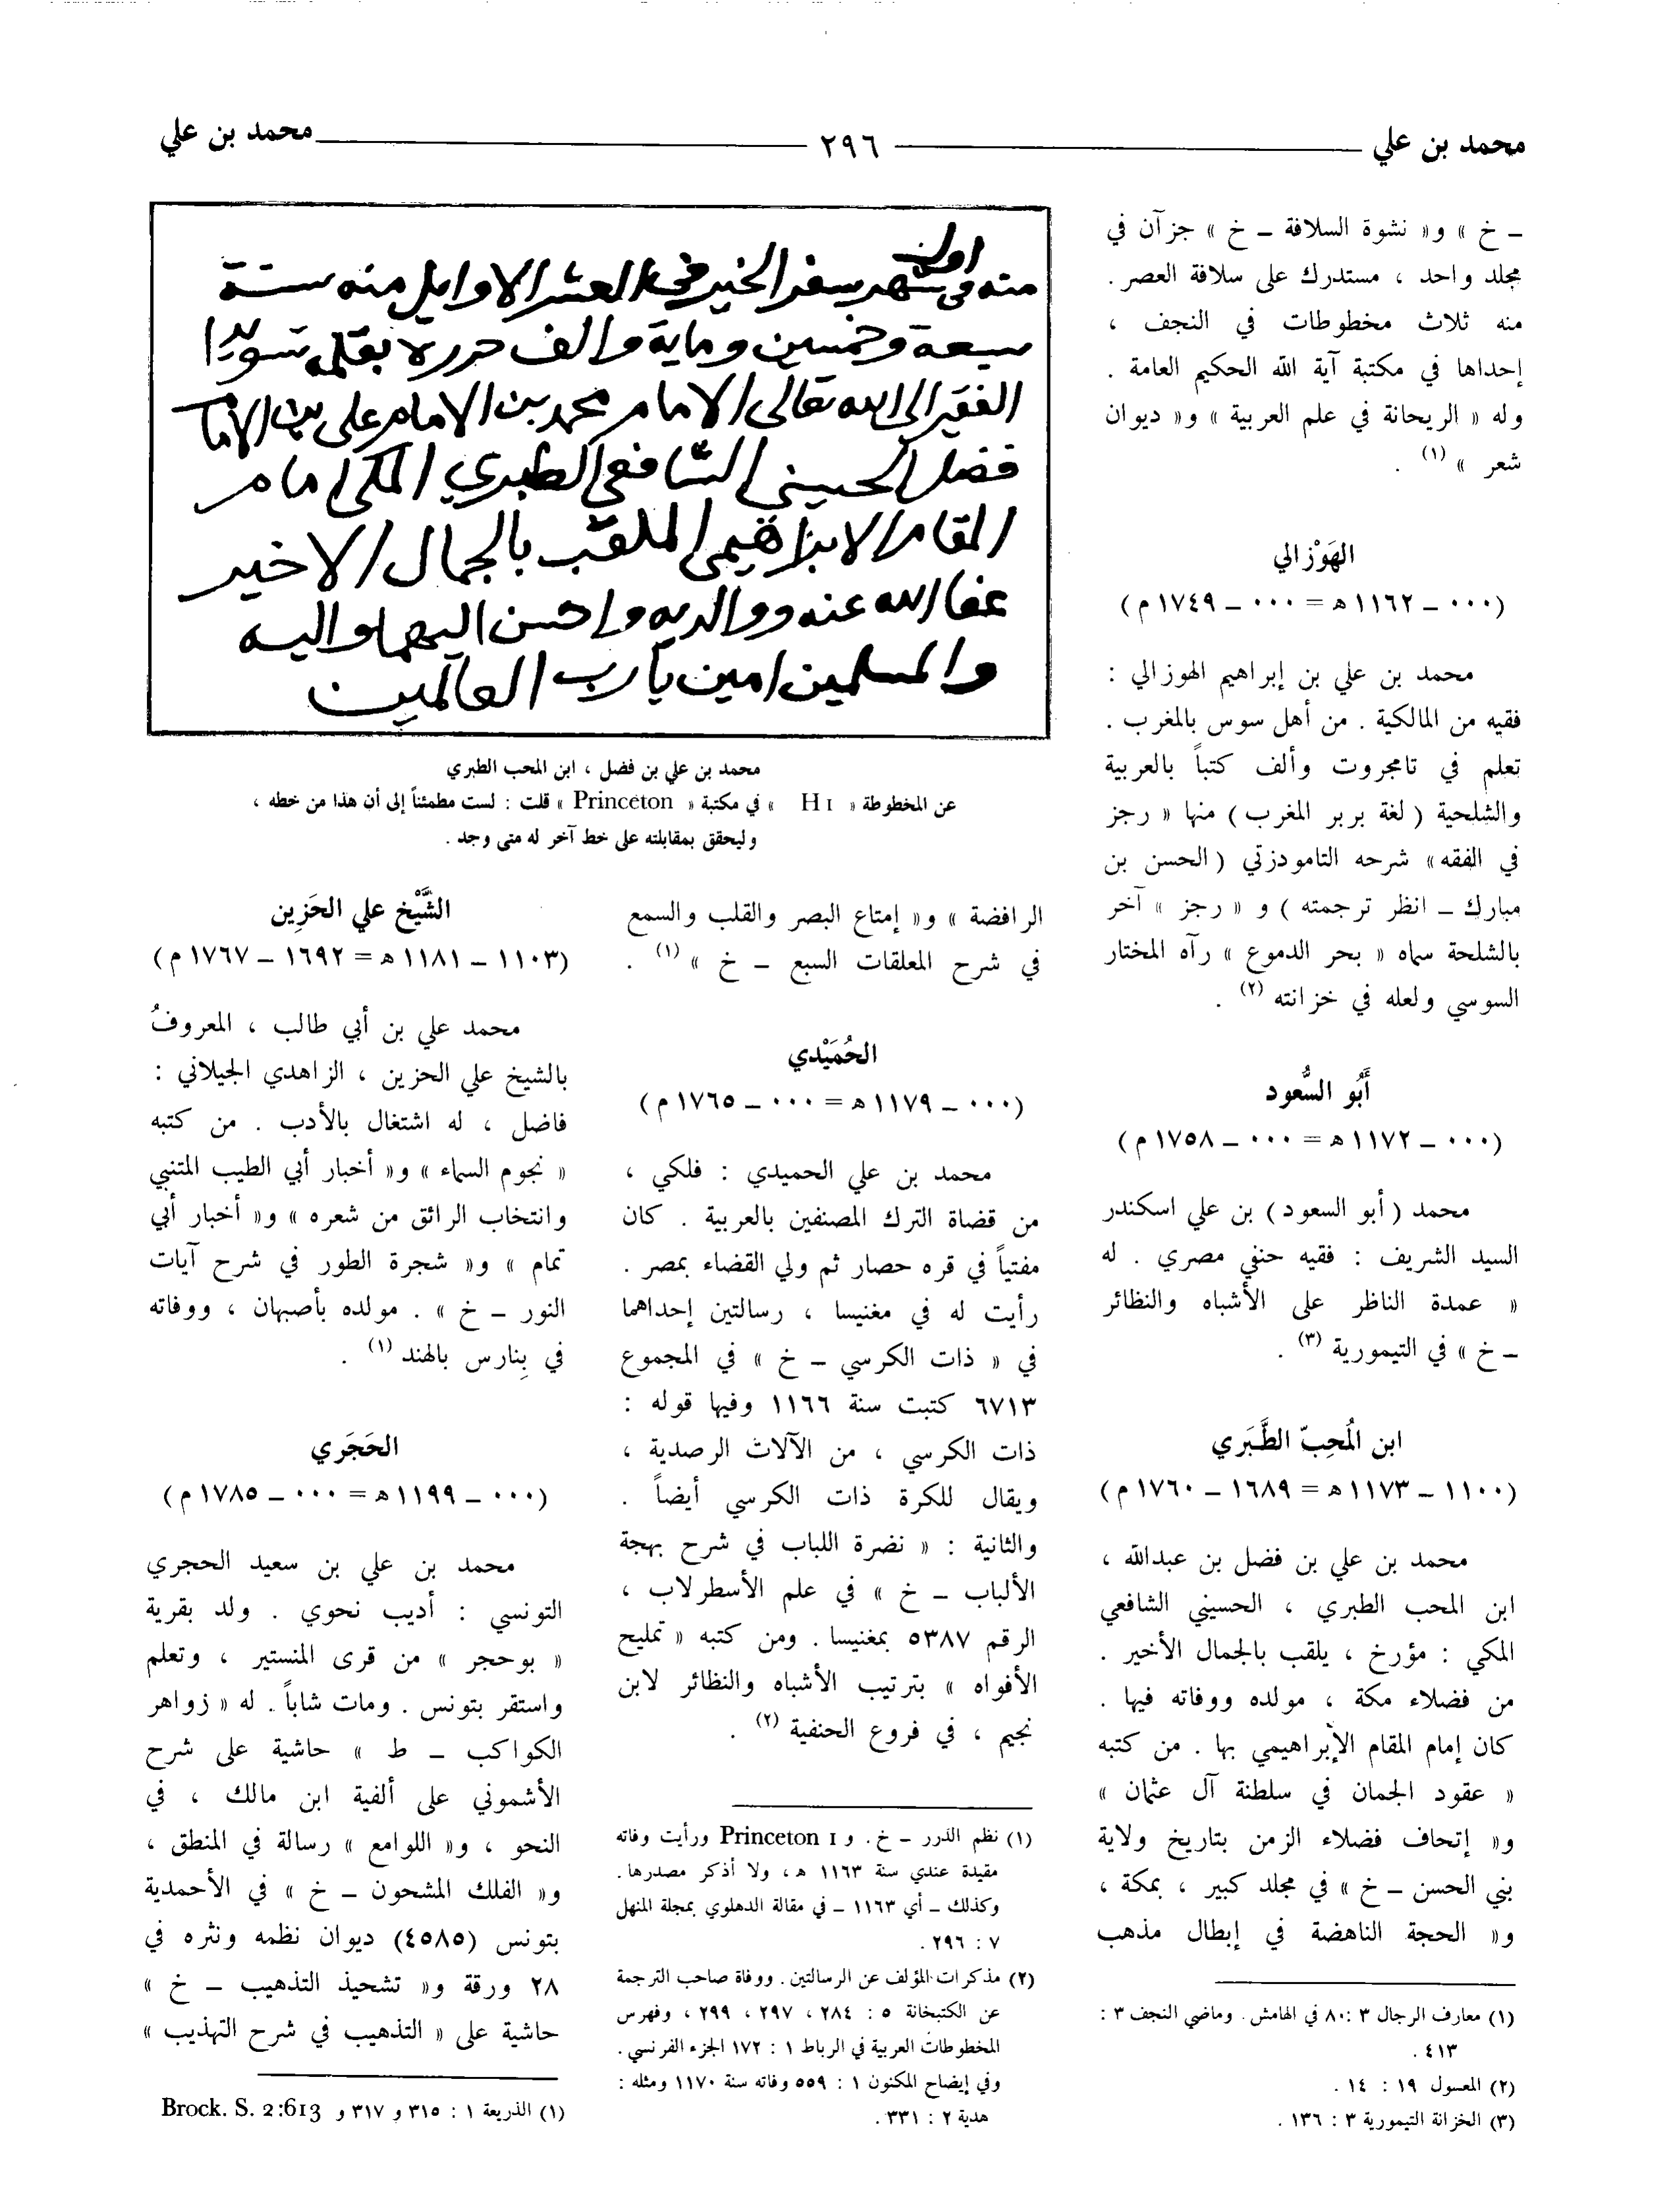 محمد بن علي ٢٩٦ محمد بن علي
ـ خ » و« نشوة السلافة ـ خ » جزآن في
مجلد واحد ، مستدرك على سلافة العصر .
منه ثلاث مخطوطات في النجف ،
إحداها في مكتبة آية الله الحكيم العامة .
وله « الريحانة في علم العربية » و« ديوان
شعر » (١) .
الهَوْزالي
(٠٠٠ ـ ١١٦٢ هـ = ٠٠٠ ـ ١٧٤٩ م)
محمد بن علي بن إبراهيم الهوزالي :
فقيه من المالكية . من أهل سوس بالمغرب .
تعلم في تامجروت وألف كتباً بالعربية
والشلحية ( لغة بربر المغرب ) منها « رجز
في الفقه» شرحه التامودزتي ( الحسن بن
مبارك ـ انظر ترجمته ) و « رجز » آخر
بالشلحة سماه « بحر الدموع » رآه المختار
السوسي ولعله في خزانته (٢) .
أَبُو السُّعود
(٠٠٠ ـ ١١٧٢ هـ = ٠٠٠ ـ ١٧٥٨ م)
محمد ( أبو السعود ) بن علي اسكندر
السيد الشريف : فقيه حنفي مصري . له
« عمدة الناظر على الأشباه والنظائر
ـ خ » في التيمورية (٣) .
ابن المُحِبّ الطَّبَري
(١١٠٠ ـ ١١٧٣ هـ = ١٦٨٩ ـ ١٧٦٠ م)
محمد بن علي بن فضل بن عبدالله ،
ابن المحب الطبري ، الحسيني الشافعي
المكي : مؤرخ ، يلقب بالجمال الأخير .
من فضلاء مكة ، مولده ووفاته فيها .
كان إمام المقام الإبراهيمي بها . من كتبه
« عقود الجمان في سلطنة آل عثمان »
و« إتحاف فضلاء الزمن بتاريخ ولاية
بني الحسن ـ خ » في مجلد كبير ، بمكة ،
و« الحجة الناهضة في إبطال مذهب
(١) معارف الرجال ٣ : ٨٠ في الهامش . وماضي النجف ٣ :
٤١٣ .
(٢) المعسول ١٩ : ١٤ .
(٣) الخزانة التيمورية ٣ : ١٣٦ .
اول
منه في شهر سفر الخير في العشر الاوايل منه سنة
سبعة وخمسين وماية والف حرره بقلمه سويدا
الفقير الى الله تعالى الامام محمد بن الامام على بن الامام
فضل الحسيني الشافعي الطبري المكي امام
المقام الابراهيمي الملقب بالجمال الاخير
عفا الله عنه ووالديه واحسن اليهما واليه
والمسلمين امين يا رب العالمين
محمد بن علي بن فضل ، ابن المحب الطبري
عن المخطوطة « H I » في مكتبة « Princeton » قلت : لست مطمئناً إلى أن هذا من خطه ،
وليحقق بمقابلته على خط آخر له متى وجد .
الرافضة » و« إمتاع البصر والقلب والسمع
في شرح المعلقات السبع ـ خ » (١) .
الحُمَيْدي
(٠٠٠ ـ ١١٧٩ هـ = ٠٠٠ ـ ١٧٦٥ م)
محمد بن علي الحميدي : فلكي ،
من قضاة الترك المصنفين بالعربية . كان
مفتياً في قره حصار ثم ولي القضاء بمصر .
رأيت له في مغنيسا ، رسالتين إحداهما
في « ذات الكرسي ـ خ » في المجموع
٦٧١٣ كتبت سنة ١١٦٦ وفيها قوله :
ذات الكرسي ، من الآلات الرصدية ،
ويقال للكرة ذات الكرسي أيضاً .
والثانية : « نضرة اللباب في شرح بهجة
الألباب ـ خ » في علم الأسطرلاب ،
الرقم ٥٣٨٧ بمغنيسا . ومن كتبه « تمليح
الأفواه » بترتيب الأشباه والنظائر لابن
نجيم ، في فروع الحنفية (٢) .
(١) نظم الدرر ـ خ . و Princeton I ورأيت وفاته
مقيدة عندي سنة ١١٦٣ هـ ، ولا أذكر مصدرها .
وكذلك ـ أي ١١٦٣ ـ في مقالة الدهلوي بمجلة المنهل
٧ : ٢٩٦ .
(٢) مذكرات المؤلف عن الرسالتين . ووفاة صاحب الترجمة
عن الكتبخانة ٥ : ٢٨٤ ، ٢٩٧ ، ٢٩٩ ، وفهرس
المخطوطات العربية في الرباط ١ : ١٧٢ الجزء الفرنسي .
وفي إيضاح المكنون ١ : ٥٥٩ وفاته سنة ١١٧٠ ومثله :
هدية ٢ : ٣٣١ .
الشَّيْخ علي الحَزِين
(١١٠٣ ـ ١١٨١ هـ = ١٦٩٢ ـ ١٧٦٧ م)
محمد علي بن أبي طالب ، المعروفُ
بالشيخ علي الحزين ، الزاهدي الجيلاني :
فاضل ، له اشتغال بالأدب . من كتبه
« نجوم السماء » و« أخبار أبي الطيب المتنبي
وانتخاب الرائق من شعره » و« أخبار أبي
تمام » و« شجرة الطور في شرح آيات
النور ـ خ » . مولده بأصبهان ، ووفاته
في بِنارس بالهند (١) .
الحَجَري
(٠٠٠ ـ ١١٩٩ هـ = ٠٠٠ ـ ١٧٨٥ م)
محمد بن علي بن سعيد الحجري
التونسي : أديب نحوي . ولد بقرية
« بوحجر » من قرى المنستير ، وتعلم
واستقر بتونس . ومات شاباً . له « زواهر
الكواكب ـ ط » حاشية على شرح
الأشموني على ألفية ابن مالك ، في
النحو ، و« اللوامع » رسالة في المنطق ،
و« الفلك المشحون ـ خ » في الأحمدية
بتونس (٤٥٨٥) ديوان نظمه ونثره في
٢٨ ورقة و« تشحيذ التذهيب ـ خ »
حاشية على « التذهيب في شرح التهذيب »
(١) الذريعة ١ : ٣١٥ و ٣١٧ و Brock. S. 2:613